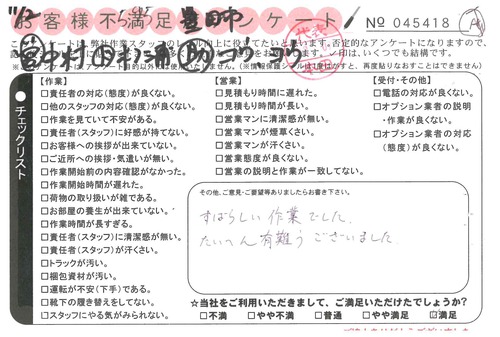 お客様不満足アンケート
№ 045418
【作業】
□責任者の対応(態度)が良くない。
□他のスタッフの対応(態度)が良くない。
□作業を見ていて不安がある。
□責任者(スタッフ)に好感が持てない。
□お客様への挨拶が出来ていない。
□ご近所への挨拶・気遣いが無い。
□作業開始前の内容確認がなかった。
□作業開始時間が遅れた。
□荷物の取り扱いが雑である。
□お部屋の養生が出来ていない。
□作業時間が長すぎる。
□責任者(スタッフ)に清潔感が無い。
□責任者(スタッフ)が汗くさい。
□トラックが汚い。
□梱包資材が汚い。
□運転が不安(下手)である。
□靴下の履き替えをしてない。
□スタッフにやる気がみられない。
【営業】
□見積もり時間に遅れた。
□見積もり時間が長い。
□営業マンに清潔感が無い。
□営業マンが煙草くさい。
□営業マンが汗くさい。
□営業態度が良くない。
□営業の説明と作業が一致してない。
【受付・その他】
□電話の対応が良くない。
□オプション業者の説明
・作業が良くない。
□オプション業者の対応
(態度)が良くない。
チェックリスト
その他、ご意見・ご要望等ありましたらお書き下さい。
すばらしい作業でした。
たいへん有難うございました。
☆当社をご利用いただきまして、ご満足いただけたでしょうか?
□不満 □やや不満 □普通 □やや満足 ☑満足